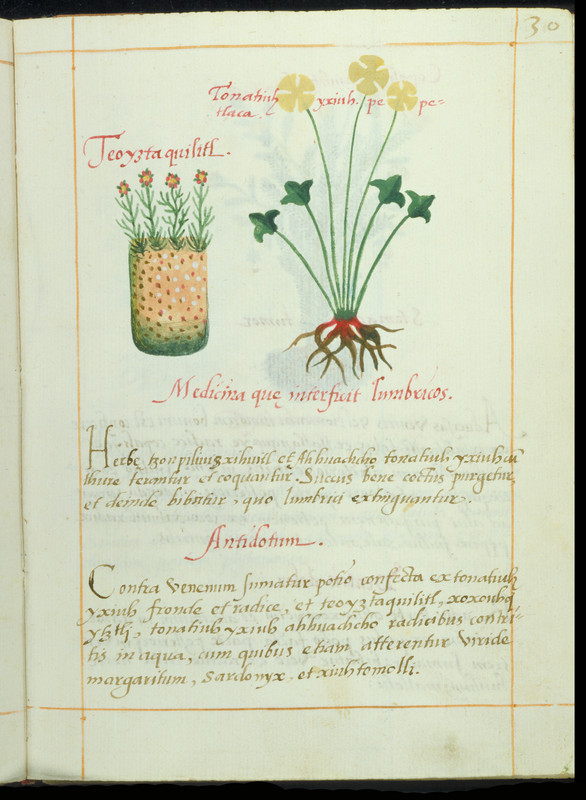 30
Tonatiuh yxiuh. pe pe=
tlaca.
Teoyztaquilitl.
Medicina quę interficit lumbricos.
Herbę tzonpilihuizxihuitl et Ahhuachcho tonatiuh yxiuh cũ
thure terantur et coquantur. Succus bene coctus purgetur
et deinde bibatur, quo lumbrici extinguantur.
Antidotum.
Contra venenum sumatur potio confecta ex tonatiuh
yxiuh fronde et radice, et teoyztaquilitl, xoxouhq
yztli, tonatiuh yxiuh ahhuachcho radicibus contri-
tis in aqua, cum quibus etiam atterentur viride
margaritum, sardonyx, et xiuhtomolli.